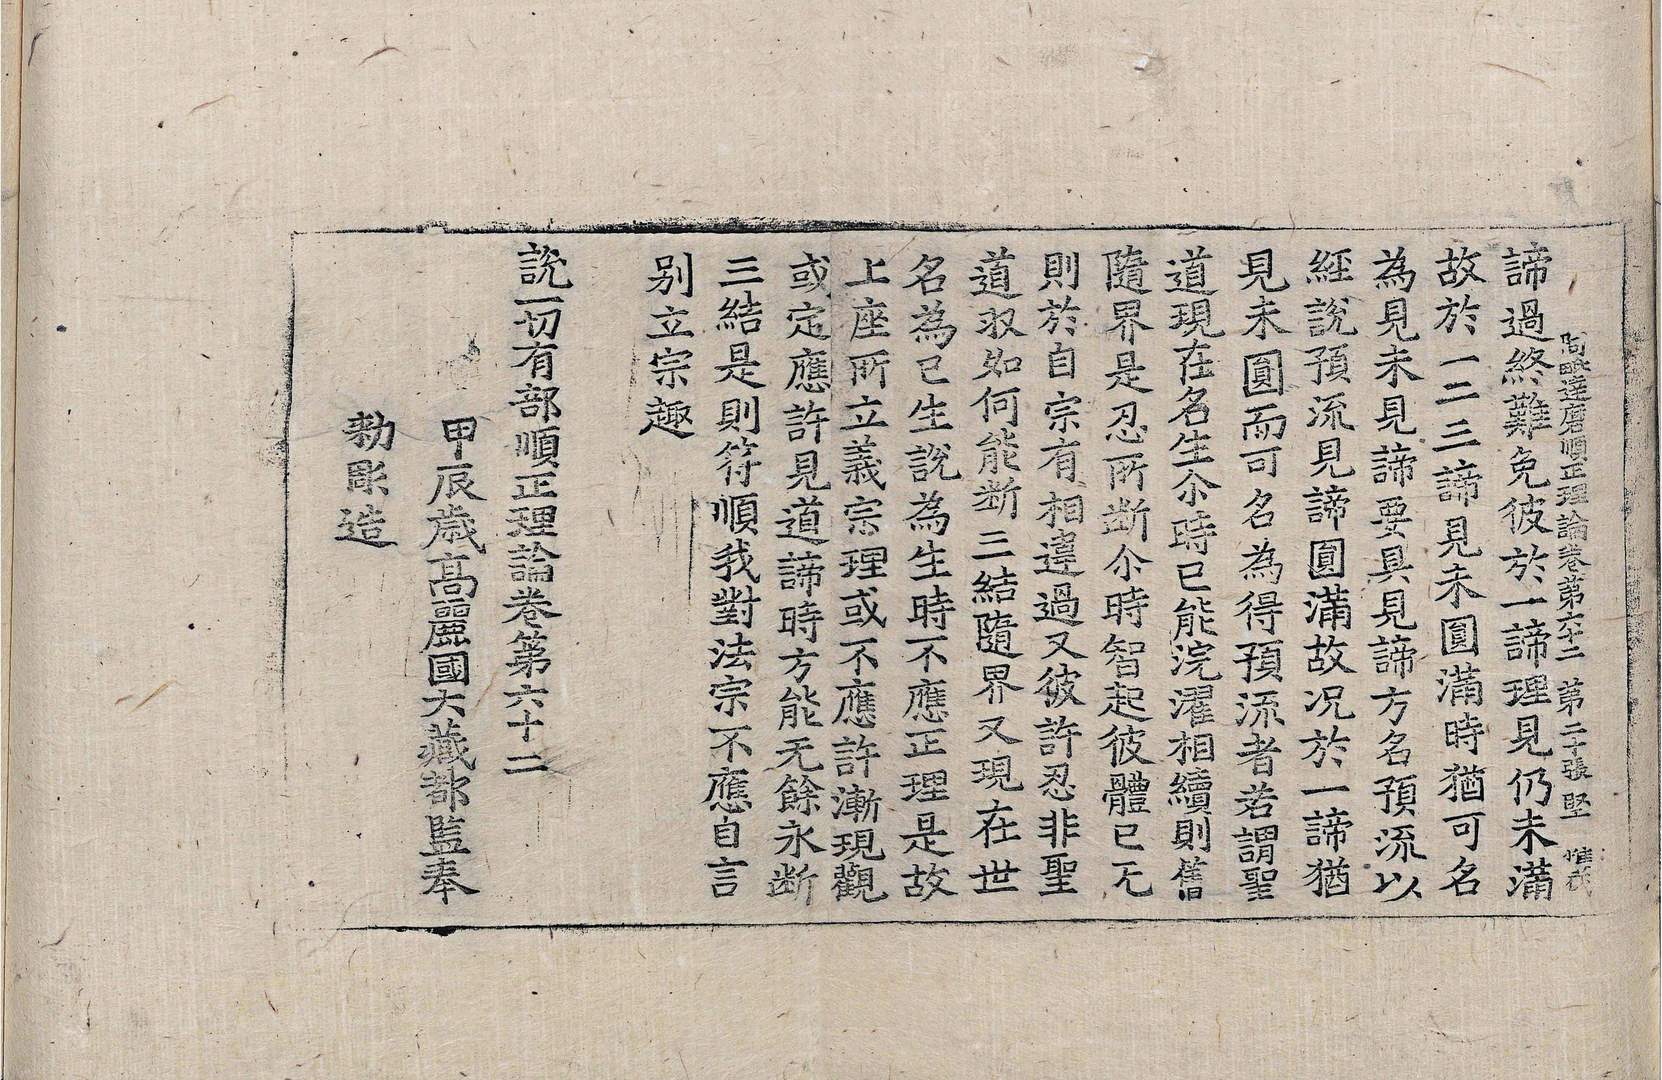 阿毗達磨順正理論卷第六十二 第二十張 堅
諦過終難免彼於一諦理見仍未滿
故於一二三諦見未圓滿時猶可名
為見未見諦要具見諦方名預流以
經說預流見諦圓滿故况於一諦猶
見未圓而可名為得預流者若謂聖
道現在名生尒時已能浣濯相續則舊
隨界是忍所断尒時智起彼體已无
則於自宗有相違過又彼許忍非聖
道収如何能断三結隨界又現在世
名為已生說為生時不應正理是故
上座所立義宗理或不應許漸現觀
或定應許見道諦時方能无餘永断
三結是則符順我對法宗不應自言
别立宗趣
說一切有部順正理論卷第六十二
甲辰歲高麗國大藏都監奉
勅彫造